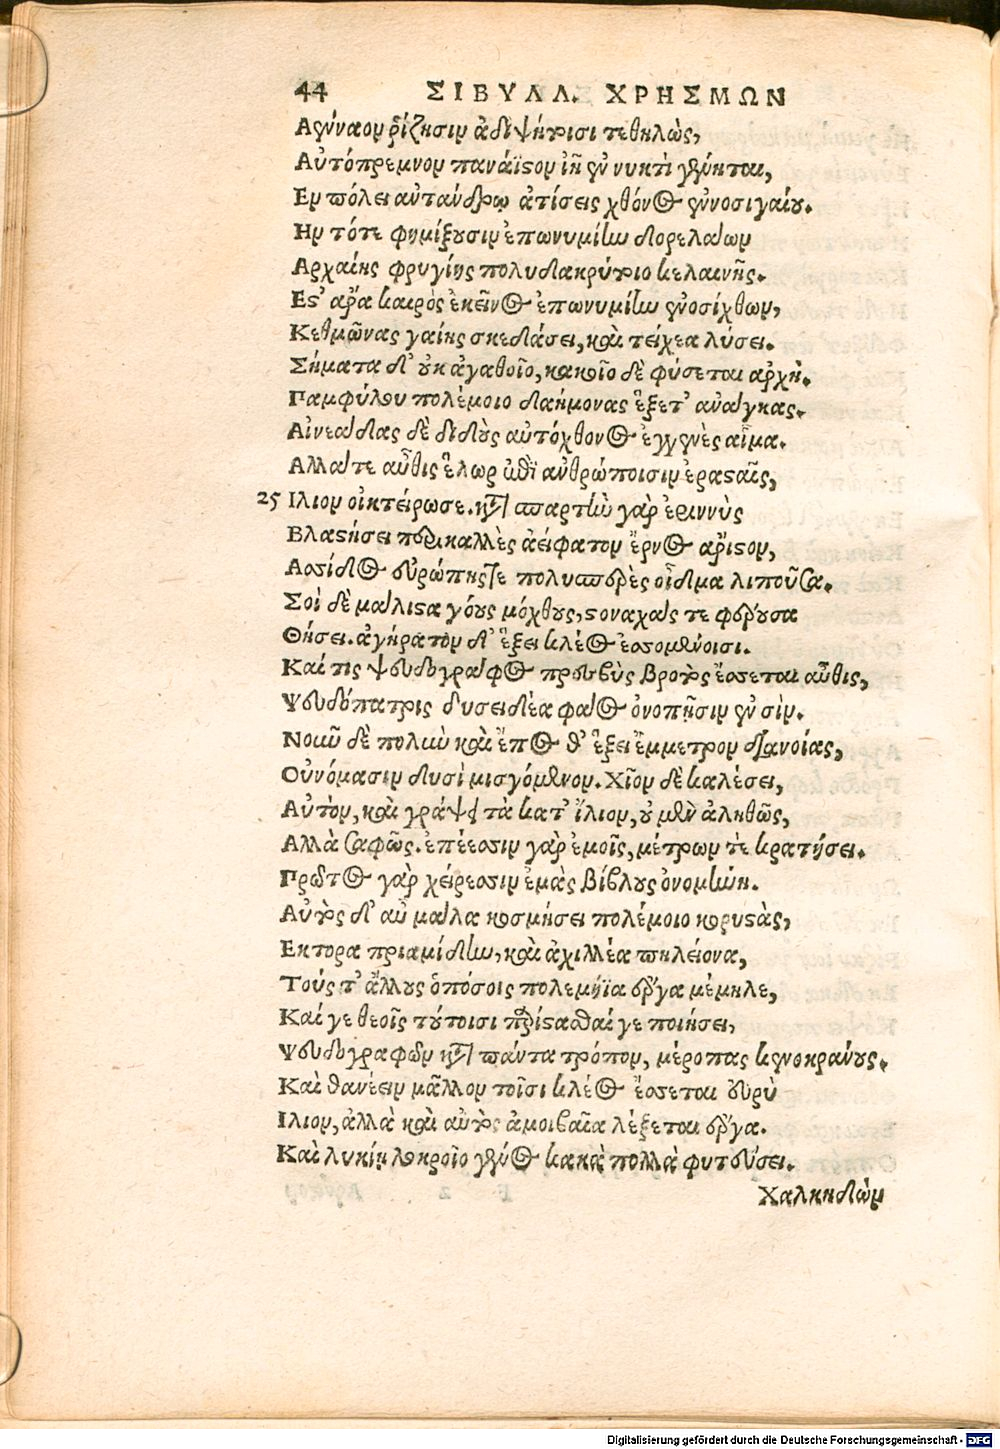 44 ΣΙΒΥΛΛ. ΧΡΗΣΜΩΝ
Αγύναον ῥίζησιν ἀδιψήτοισι τεθηλὼς,
Αὐτόπρεμνον πανάϊστον ἰῇ ἐν νυκτὶ γένηται,
Εν πόλει αὐτάνδρῳ ἀτίσεις χθόνος ἐννοσιγαίου.
Ην τότε φημίξουσιν ἐπωνυμίην δορελαίων
Αρχαίης φρυγίης πολυδακρύτοιο κελαινῆς.
Εστ' ἄρα καιρὸς ἐκεῖνος ἐπωνυμίην ἐνοσίχθων,
Κευθμῶνας γαίης σκεδάσει, καὶ τείχεα λύσει.
Σήματα δ' οὐκ ἀγαθοῖο, κακοῖο δὲ φύσεται ἀρχή.
Παμφύλου πολέμοιο δαήμονας ἕξετ' ἀνάγκας.
Αἰνεάδας δὲ διδοὺς αὐτόχθονος ἐγγενὲς αἷμα.
Αλλάτε αὖθις ἕλωρ ἔσῃ ἀνθρώποισιν ἐρασταῖς,
25 Ιλιον οἰκτείρω σε. κατὰ σπαρτὴν γὰρ ἐριννὺς
Βλαστήσει περικαλλὲς ἀείφατον ἔρνος ἄριστον,
Ασίδος εὐρώπης τε πολυσπερὲς οἶδμα λιποῦσα.
Σοὶ δὲ μάλιστα γόους μόχθους, στοναχάς τε φέρουσα
Θήσει. ἀγήρατον δ' ἕξει κλέος ἐσσομένοισι.
Καί τις ψευδογράφος πρέσβυς βροτὸς ἔσσεται αὖθις,
Ψευδόπατρις δύσει δέα φάος ὀνοπῇσιν ἐν σίν.
Νοιῦ δὲ πολιὺ καὶ ἔπος θ' ἕξει ἔμμετρον διανοίας,
Οὐνόμασιν δυσὶ μισγόμενον. Χῖον δὲ καλέσει,
Αὐτὸν, καὶ γράψει τὰ κατ' ἴλιον, οὐ μὲν ἀληθῶς,
Αλλὰ σαφῶς. ἐπέεσσιν γὰρ ἐμοῖς, μέτρων τὲ κρατήσει.
Πρῶτος γὰρ χείρεσσιν ἐμὰς βίβλους ὀνομήνῃ.
Αὐτὸς δ' αὖ μάλα κοσμήσει πολέμοιο κορυστὰς,
Εκτορα πριαμίδην, καὶ ἀχιλλέα πηλείονα,
Τούς τ' ἄλλους ὁπόσοις πολεμήϊα ἔργα μέμηλε,
Καί γε θεοῖς τούτοισι παρίστασθαί γε ποιήσει,
Ψευδογραφῶν κατὰ πάντα τρόπον, μέροπας κενοκράνους.
Καὶ θανέειν μᾶλλον τοῖσι κλέος ἔσσεται εὐρὺ
Ιλιον, ἀλλὰ καὶ αὐτὸς ἀμοιβαῖα λέξεται ἔργα.
Καὶ λυκίῃ λοκροῖο γένος κακὰ πολλὰ φυτεύσει.
Χαλκηδὼν
Digitalisierung gefördert durch die Deutsche Forschungsgemeinschaft - DFG